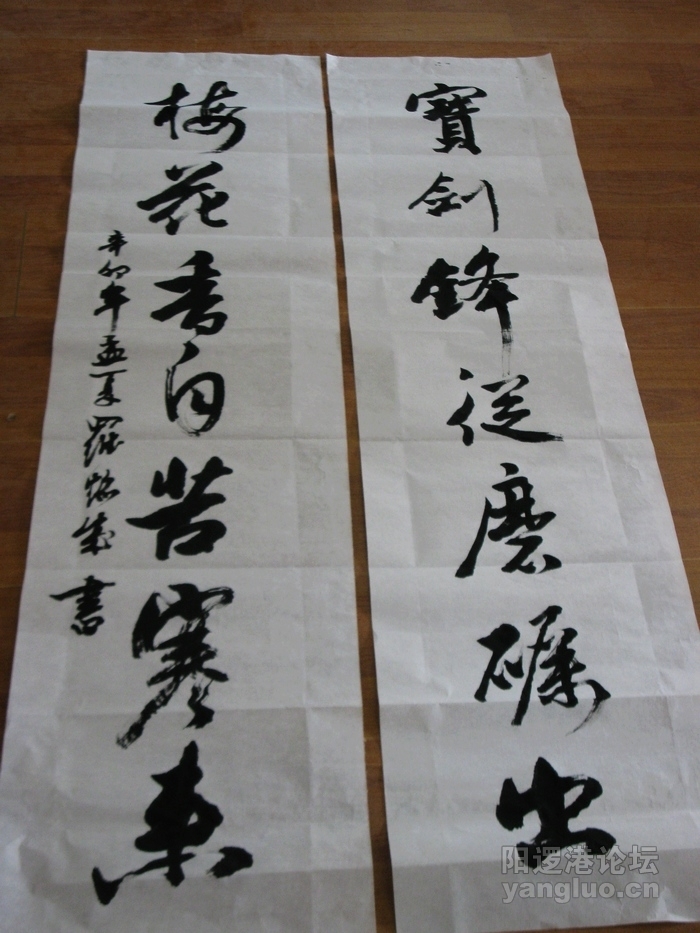 寶剑鋒從磨礪出
梅花香自苦寒来
辛卯年孟夏羅 書
阳逻港论坛
yangluo.cn